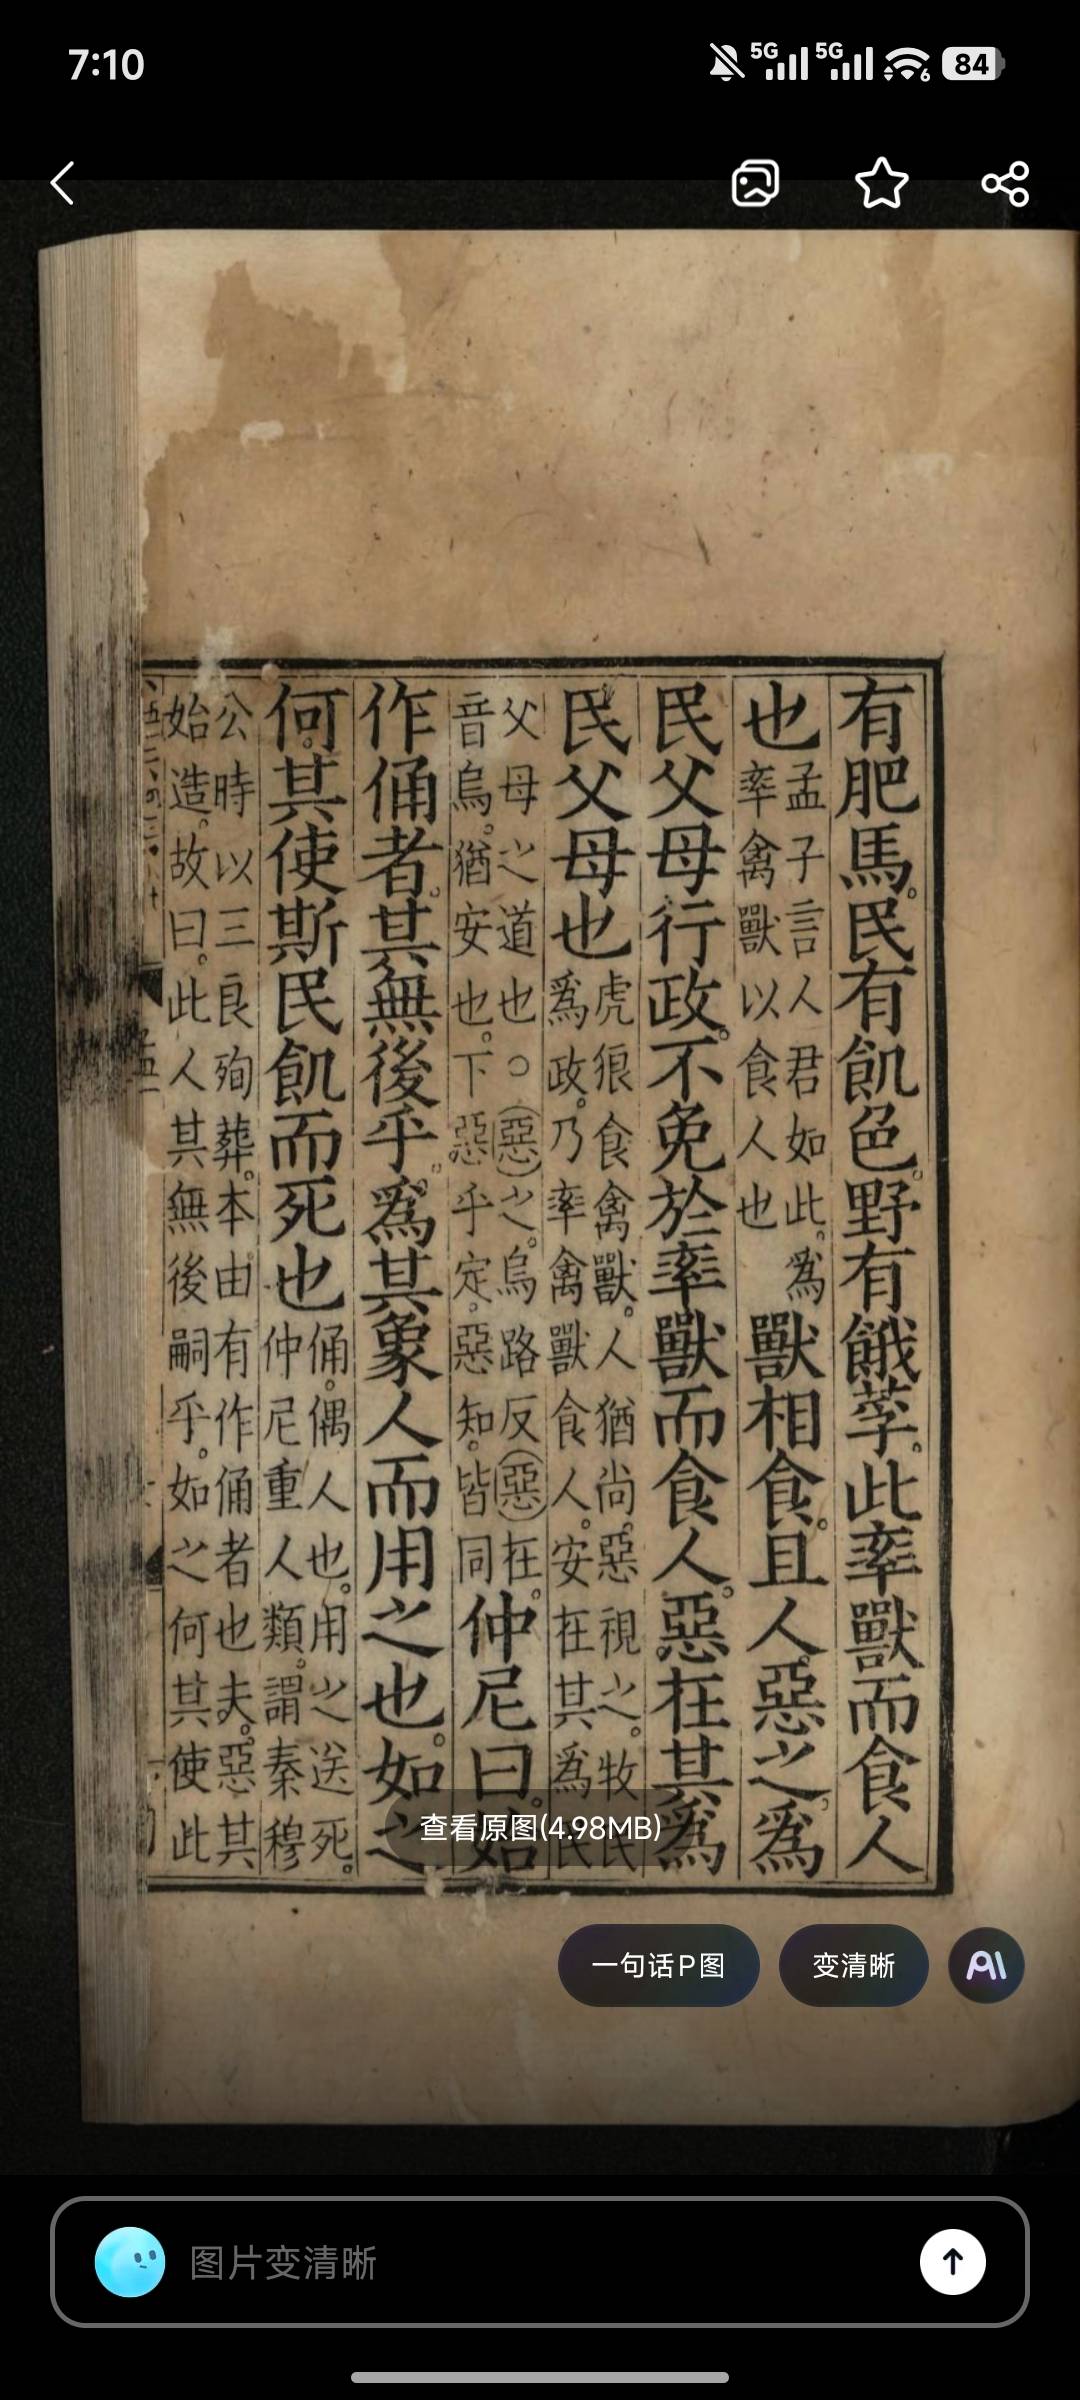 7:10
5G 5G 6 84
有肥馬民有飢色野有餓莩此率獸而食人
也
孟子言人君如此爲
率禽獸以食人也
獸相食且人惡之爲
民父母行政不免於率獸而食人惡在其爲
民父母也
虎狼食禽獸人猶尚惡視之牧民
爲政乃率禽獸食人安在其爲民
父母之道也○惡之烏路反惡在
音烏猶安也下惡乎定惡知皆同
仲尼曰始
作俑者其無後乎爲其象人而用之也如之
何其使斯民飢而死也
俑偶人也用之送死
仲尼重人類謂秦穆
公時以三良殉葬本由有作俑者也夫惡其
始造故曰此人其無後嗣乎如之何其使此
查看原图(4.98MB)
一句话P图
变清晰
AI
图片变清晰